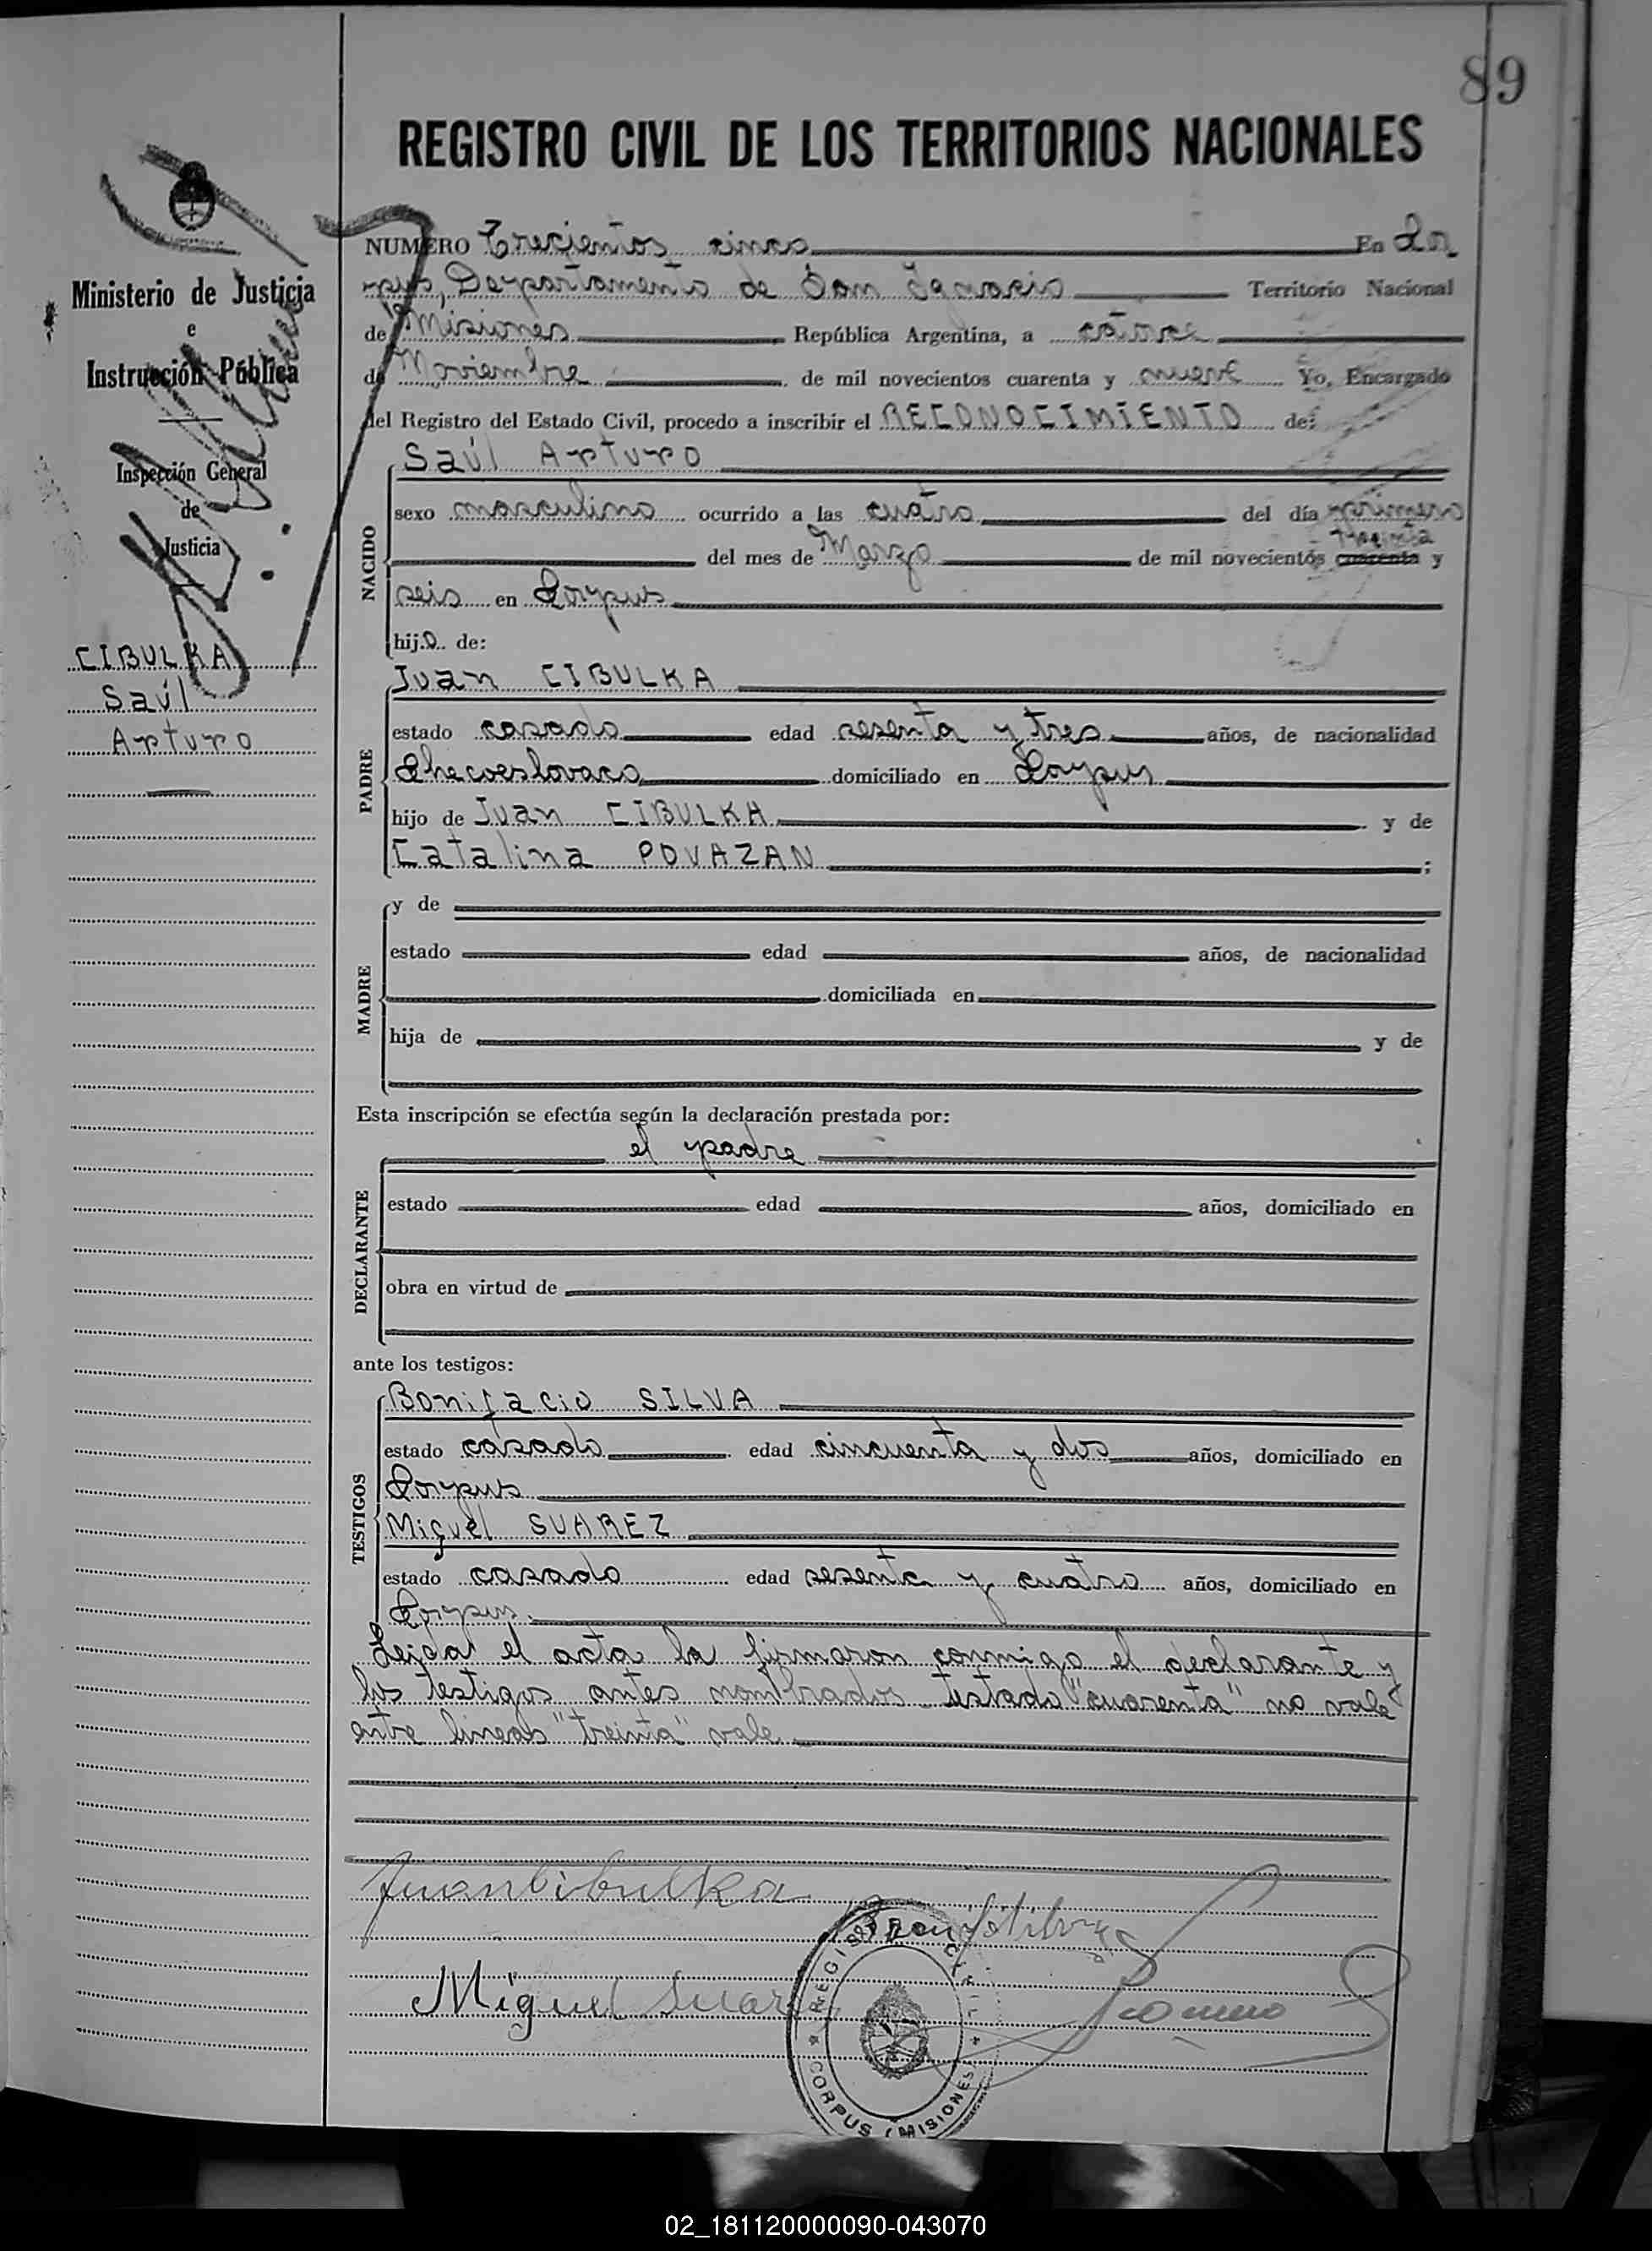 89
REGISTRO CIVIL DE LOS TERRITORIOS NACIONALES
Ministerio de Justicia
e
Instrucción Pública
Inspección General
de
Justicia
CIBULKA
Saúl
Arturo
NUMERO Trecientos cinco En Cor
pus, Departamento de San Ignacio Territorio Nacional
de Misiones República Argentina, a catorce
de Noviembre de mil novecientos cuarenta y nueve Yo, Encargado
del Registro del Estado Civil, procedo a inscribir el RECONOCIMIENTO de:
NACIDO
Saúl Arturo
sexo masculino ocurrido a las cuatro del día primero
treinta
del mes de Marzo de mil novecientos cuarenta y
seis en Corpus
hijo de:
PADRE
Juan CIBULKA
estado casado edad sesenta y tres años, de nacionalidad
Checoeslovaco domiciliado en Corpus
hijo de Juan CIBULKA y de
Catalina POVAZAN ;
MADRE
y de
estado edad años, de nacionalidad
domiciliada en
hija de y de
Esta inscripción se efectúa según la declaración prestada por:
DECLARANTE
el padre
estado edad años, domiciliado en
obra en virtud de
ante los testigos:
TESTIGOS
Bonifacio SILVA
estado casado edad cincuenta y dos años, domiciliado en
Corpus
Miguel SUAREZ
estado casado edad sesenta y cuatro años, domiciliado en
Corpus.
Leida el acta la firmaron conmigo el declarante y
los testigos antes nombrados testado "cuarenta" no vale
entre lineas "treinta" vale.
Juan Cibulka
Miguel Suar
REGISTRO CIVIL
CORPUS (MISIONES)
02_181120000090-043070